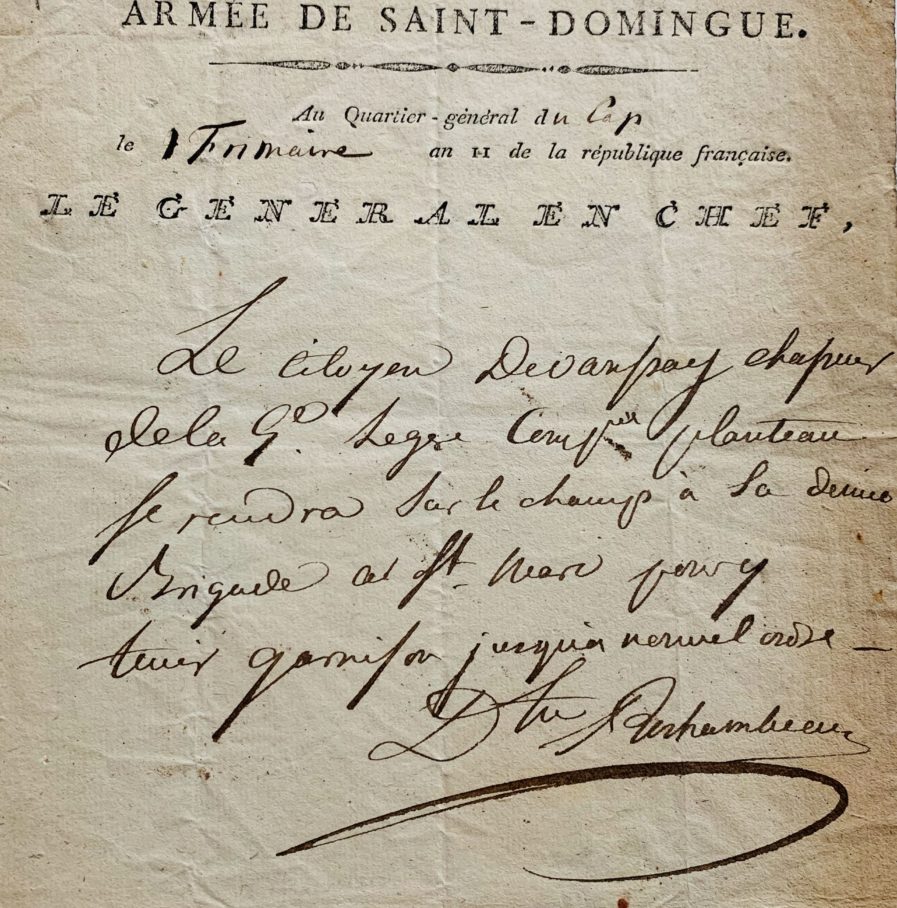 ARMÉE DE SAINT-DOMINGUE.
Au Quartier-général du Cap
le 1 Frimaire an 11 de la république française.
LE GENERAL EN CHEF,
Le citoyen Devanssay
de la Gd. Legere Comp.
se rendra sur le champ à sa demie
Brigade at St. Marc pour y
tenir garnison jusqu'a nouvel ordre
Dtn Rochambeau